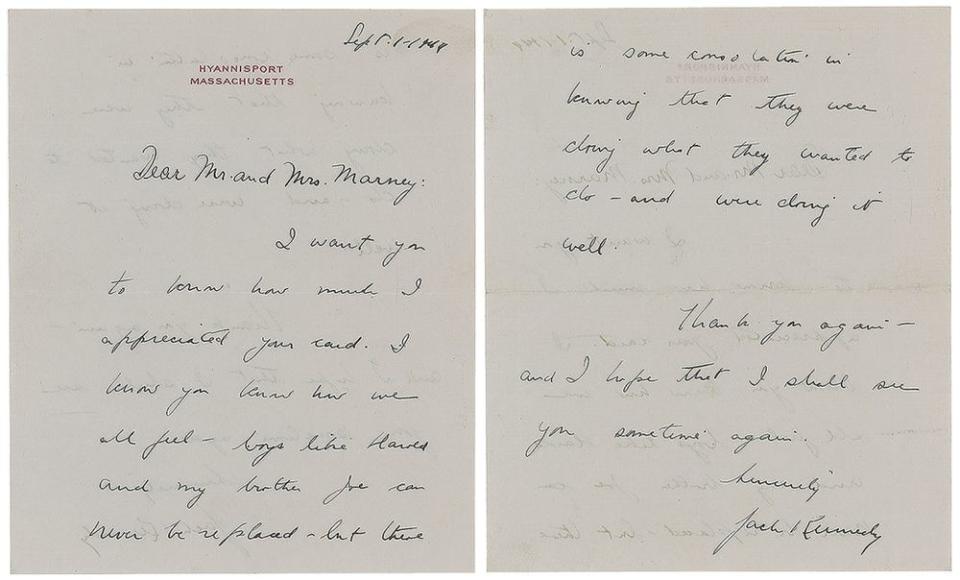 Sept. 1-1944
HYANNISPORT
MASSACHUSETTS
Dear Mr. and Mrs. Marney:
I want you
to know how much I
appreciated your card. I
know you know how we
all feel - boys like Harold
and my brother Joe can
never be replaced - but there
is some consolation in
knowing that they were
doing what they wanted to
do - and were doing it
well.
Thank you again -
and I hope that I shall see
you sometime again.
Sincerely
Jack Kennedy